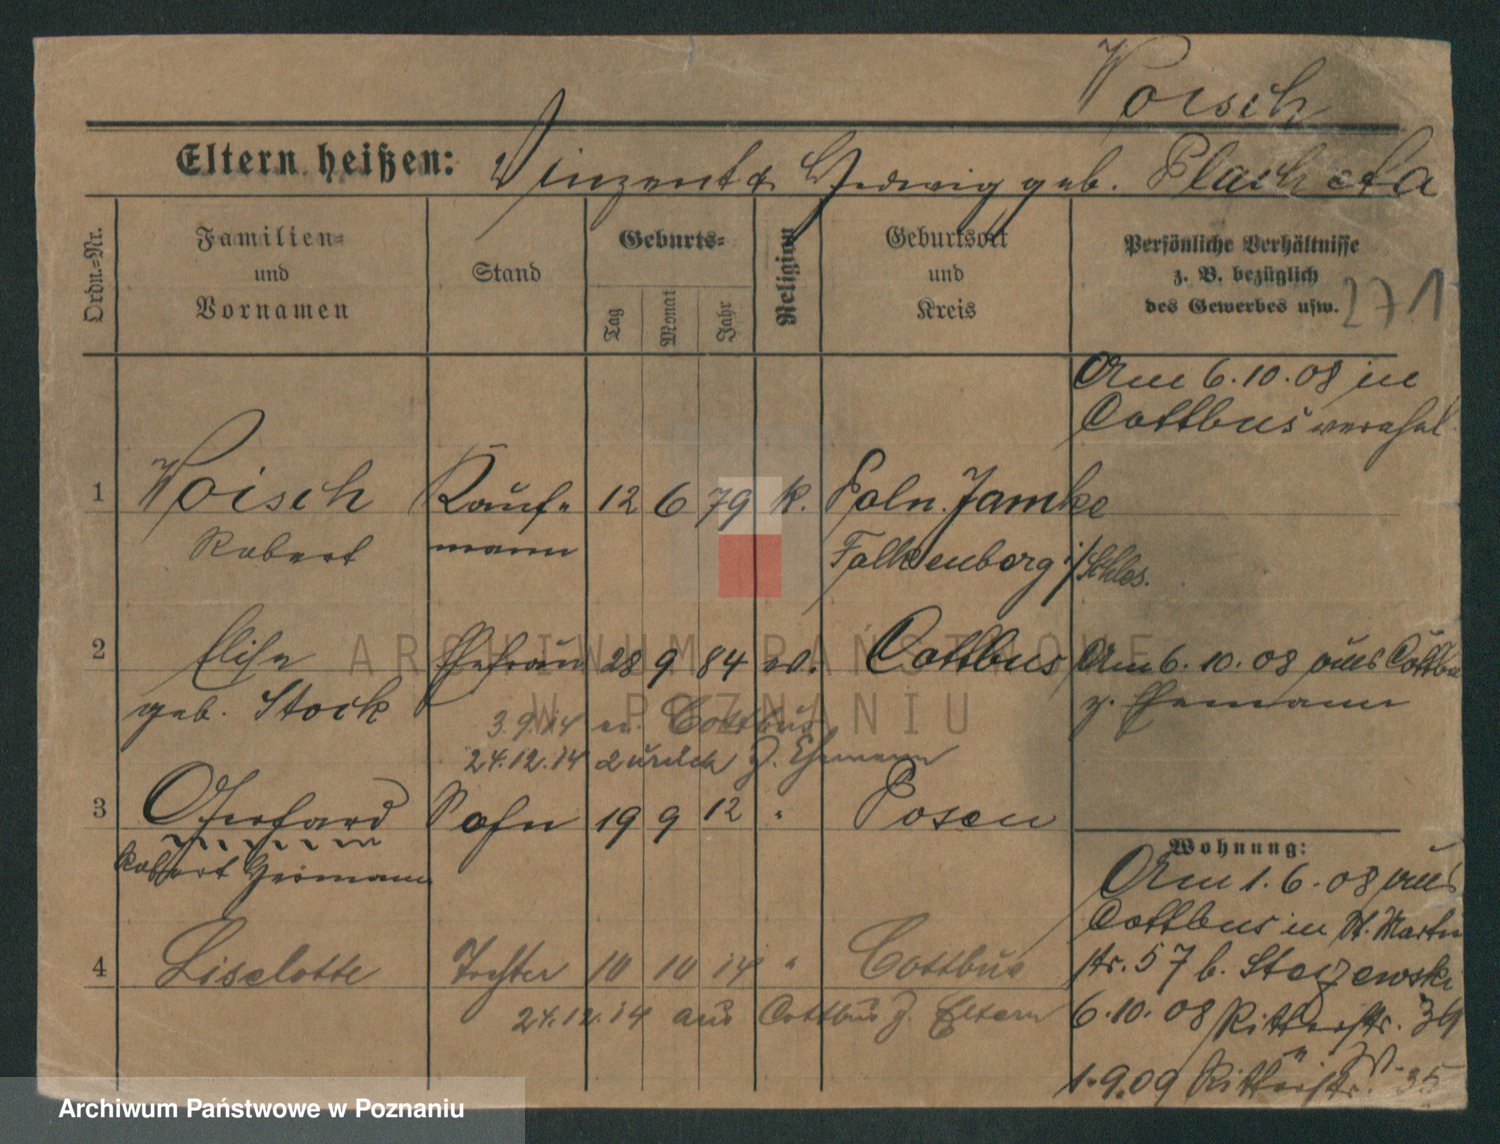 Woisch
Eltern heißen: Vinzent & Hedwig geb. Placheta
Ordn.=Nr.
Familien=
und
Vornamen
Stand
Geburts=
Tag
Monat
Jahr
Religion
Geburtsort
und
Kreis
Persönliche Verhältnisse
z. B. bezüglich
des Gewerbes usw.
271
Am 6.10.08 in
Cottbus verehel.
1 Woisch Kauf= 12 6 79 k. Poln. Jamke
Robert mann Falkenberg i/Schles.
2 Elise Ehefrau 28 9 84 ev. Cottbus Am 6.10.08 aus Cottbus
geb. Stock z. Ehemann
3.9.14 n. Cottbus
24.12.14 zurück z. Ehemann
3 Gerhard Sohn 19 9 12 " Posen
Robert Hermann
Wohnung:
Am 1.6.08 aus
Cottbus in St. Martin
str. 57 b.
4 Liselotte Tochter 10 10 14 " Cottbus
24.12.14 aus Cottbus z. Eltern
6.10.08 Ritterstr. 39
1.9.09 Ritterstr. 35
ARCHIWUM PAŃSTWOWE
W POZNANIU
Archiwum Państwowe w Poznaniu